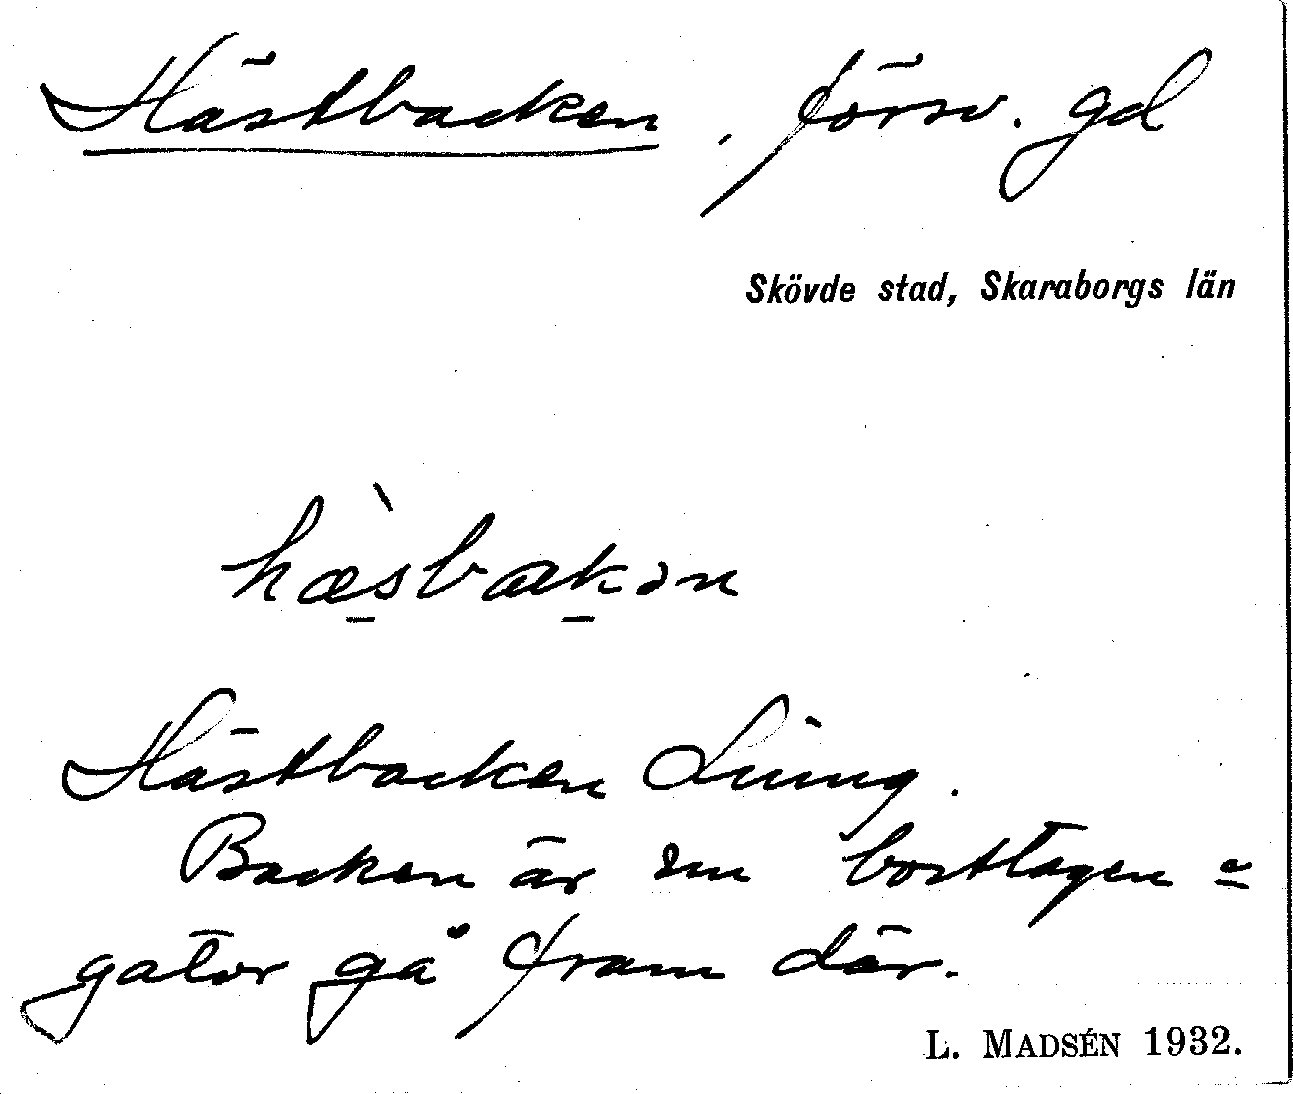 Hästbacken, försv. gd
Skövde stad, Skaraborgs län
hæ̀sbakən
Hästbacken Ljung.
Backen är nu borttagen o
gator gå fram där.
L. MADSÉN 1932.